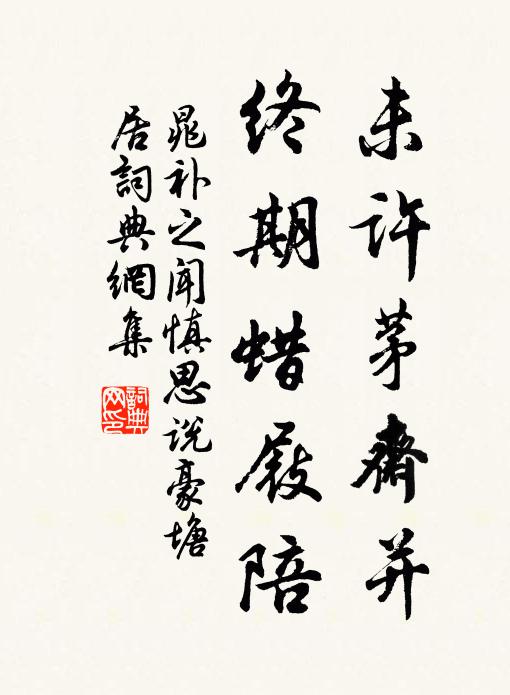 未许茅斋并
终期蜡屐陪
晁补之闻慎思说豪塘
居词典网集
词典网印